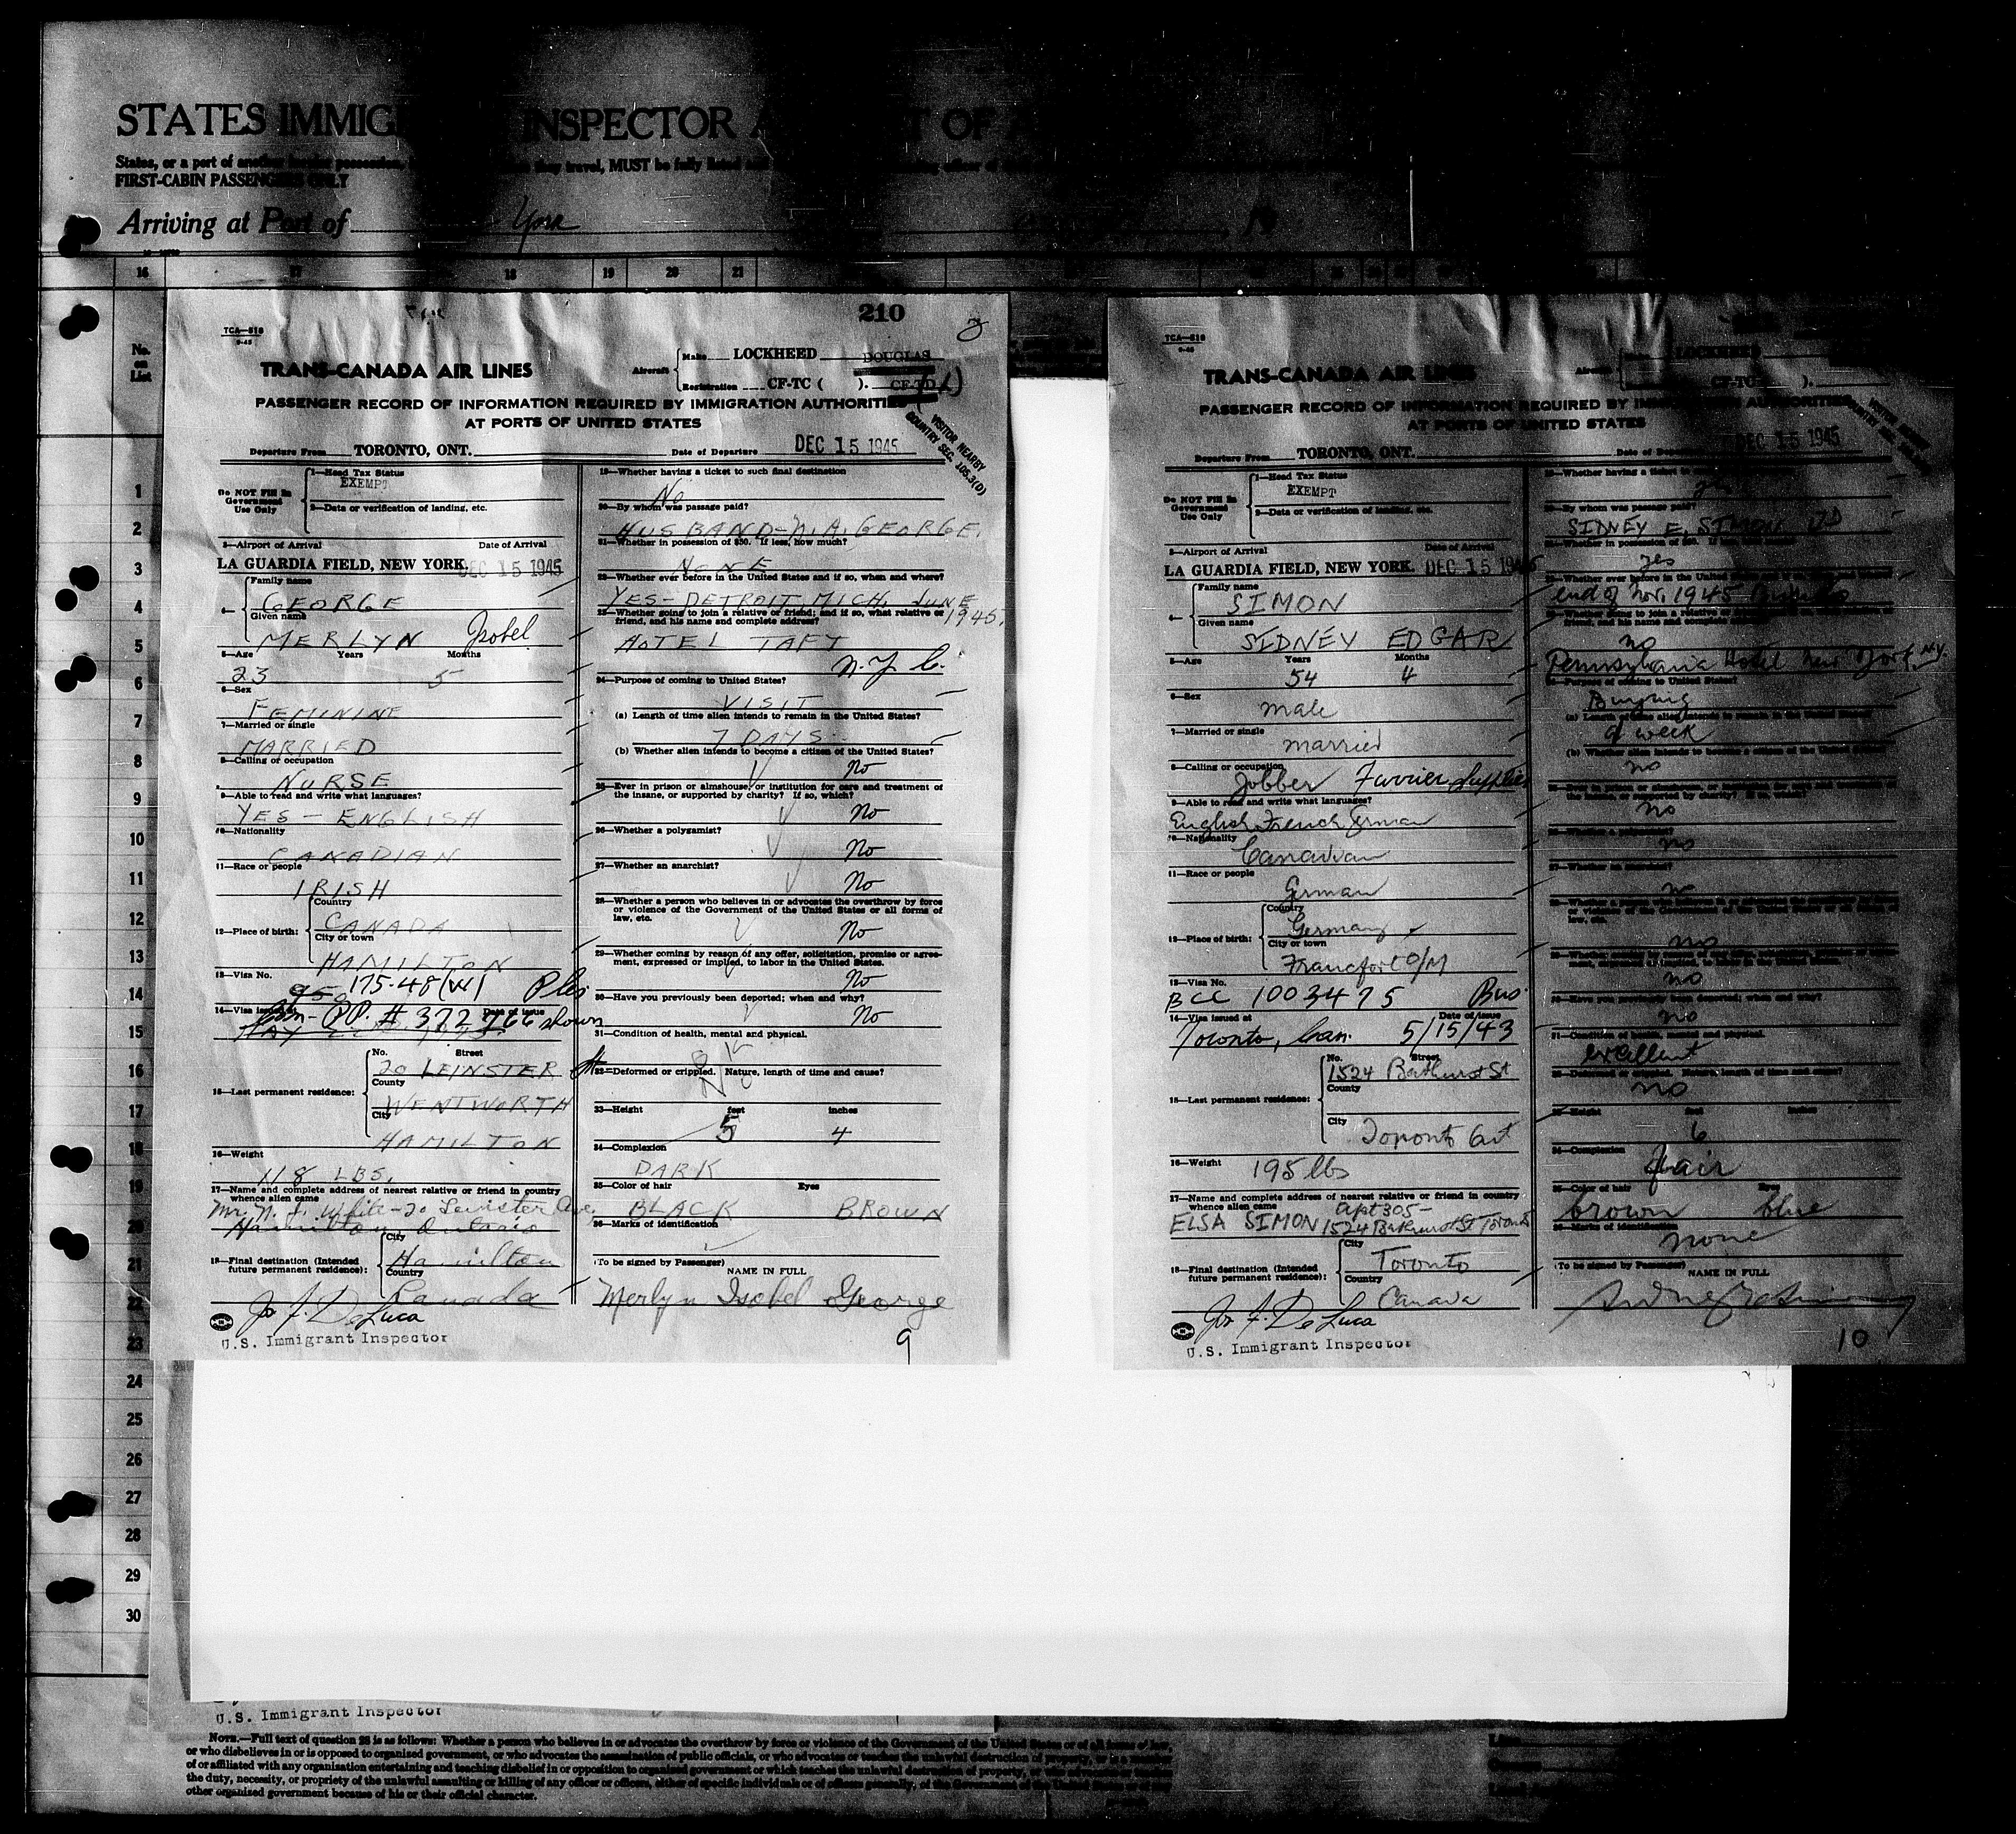 STATES IMMIG INSPECTOR A T OF A
States, or a part of another possession, they travel, MUST be fully listed
FIRST-CABIN PASSENGERS ONLY
Arriving at Port of York
16 17 18 19 20 21
No. on List
1
2
3
4
5
6
7
8
9
10
11
12
13
14
15
16
17
18
19
20
21
22
23
24
25
26
27
28
29
30
210
3
TCA—518
9-45
TRANS-CANADA AIR LINES
Aircraft Make LOCKHEED DOUGLAS
Registration CF-TC ( ). CF-TD
PASSENGER RECORD OF INFORMATION REQUIRED BY IMMIGRATION AUTHORITIES
AT PORTS OF UNITED STATES
VISITOR NEARBY
COUNTRY SEC. 105.3(D)
Departure From TORONTO, ONT. Date of Departure DEC 15 1945
Do NOT Fill In Government Use Only
1—Head Tax Status
EXEMPT
2—Data or verification of landing, etc.
3—Airport of Arrival Date of Arrival
LA GUARDIA FIELD, NEW YORK. DEC 15 1945
4— Family name
GEORGE
Given name
MERLYN Isobel
5—Age Years Months
23 5
6—Sex
FEMININE
7—Married or single
MARRIED
8—Calling or occupation
NURSE
9—Able to read and write what languages?
YES - ENGLISH
10—Nationality
CANADIAN
11—Race or people
IRISH
12—Place of birth: Country
CANADA
City or town
HAMILTON
13—Visa No.
175-48(W) Ples
14—Visa issued at Date of issue
Can- PP. # 372766 shown
15—Last permanent residence: No. Street
20 LEINSTER
County
WENTWORTH
City
HAMILTON
16—Weight
118 LBS.
17—Name and complete address of nearest relative or friend in country
whence alien came
Mr. N. J. White-20 Leinster Ave.
Hamilton Ontario
18—Final destination (Intended future permanent residence): City
Hamilton
Country
Canada
Jos F. De Luca
U.S. Immigrant Inspector
19—Whether having a ticket to such final destination
No
20—By whom was passage paid?
HUSBAND-N.A. GEORGE.
21—Whether in possession of $50. If less, how much?
NONE
22—Whether ever before in the United States and if so, when and where?
YES-DETROIT MICH. JUNE 1945.
23—Whether going to join a relative or friend; and if so, what relative or
friend, and his name and complete address?
HOTEL TAFT
N.Y.C.
24—Purpose of coming to United States?
VISIT
(a) Length of time alien intends to remain in the United States?
7 DAYS
(b) Whether alien intends to become a citizen of the United States?
No
25—Ever in prison or almshouse or institution for care and treatment of
the insane, or supported by charity? If so, which?
No
26—Whether a polygamist?
No
27—Whether an anarchist?
No
28—Whether a person who believes in or advocates the overthrow by force
or violence of the Government of the United States or all forms of
law, etc.
No
29—Whether coming by reason of any offer, solicitation, promise or agree-
ment, expressed or implied, to labor in the United States.
No
30—Have you previously been deported; when and why?
No
31—Condition of health, mental and physical.
OK
32—Deformed or crippled. Nature, length of time and cause?
33—Height feet inches
5 4
34—Complexion
DARK
35—Color of hair Eyes
BLACK BROWN
36—Marks of identification
(To be signed by Passenger) NAME IN FULL
Merlyn Isobel George
9
TCA—518
9-45
TRANS-CANADA AIR LINES
LOCKHEED
CF-TC ( ).
PASSENGER RECORD OF INFORMATION REQUIRED BY IMMIGRATION AUTHORITIES
AT PORTS OF UNITED STATES
Departure From TORONTO, ONT. Date of DEC 15 1945
Do NOT Fill In Government Use Only
1—Head Tax Status
EXEMPT
2—Data or verification of landing, etc.
3—Airport of Arrival Date of Arrival
LA GUARDIA FIELD, NEW YORK. DEC 15 1945
4— Family name
SIMON
Given name
SIDNEY EDGAR
5—Age Years Months
54 4
6—Sex
male
7—Married or single
married
8—Calling or occupation
Jobber Furrier Supplies
9—Able to read and write what languages?
English French German
10—Nationality
Canadian
11—Race or people
German
12—Place of birth: Country
Germany
City or town
Francfort O/M
13—Visa No.
BCC 1003475 Bus.
14—Visa issued at Date of issue
Toronto, Can. 5/15/43
15—Last permanent residence: No. Street
1524 Bathurst St
County
City
Toronto Ont
16—Weight
195 lbs
17—Name and complete address of nearest relative or friend in country
whence alien came
Apt 305-
ELSA SIMON 1524 Bathurst St Toronto
18—Final destination (Intended future permanent residence): City
Toronto
Country
Canada
Jos F. De Luca
U.S. Immigrant Inspector
19—Whether having a ticket to
20—By whom was passage paid?
SIDNEY E. SIMON
yes
end of Nov. 1945
no
Pennsylvania Hotel New York N.Y.
24—Purpose of coming to United States?
Buying
a week
no
no
no
no
no
no
no
excellent
no
33—Height feet inches
6
34—Complexion
fair
35—Color of hair Eyes
brown blue
36—Marks of identification
none
(To be signed by Passenger) NAME IN FULL
10
U.S. Immigrant Inspector
NOTE.—Full text of question 28 is as follows: Whether a person who believes in or advocates the overthrow by force or violence of the Government of the United States or of all forms of law,
or who disbelieves in or is opposed to organized government, or who advocates the assassination of public officials, or who advocates or teaches the unlawful destruction of property, or is a member
of or affiliated with any organization entertaining and teaching disbelief in or opposition to organized government or which teaches the unlawful destruction of property, or who advocates or teaches
the duty, necessity, or propriety of the unlawful assaulting or killing of any officer or officers, either of specific individuals or of officers generally, of the Government of the United States or
other organized government because of his or their official character.